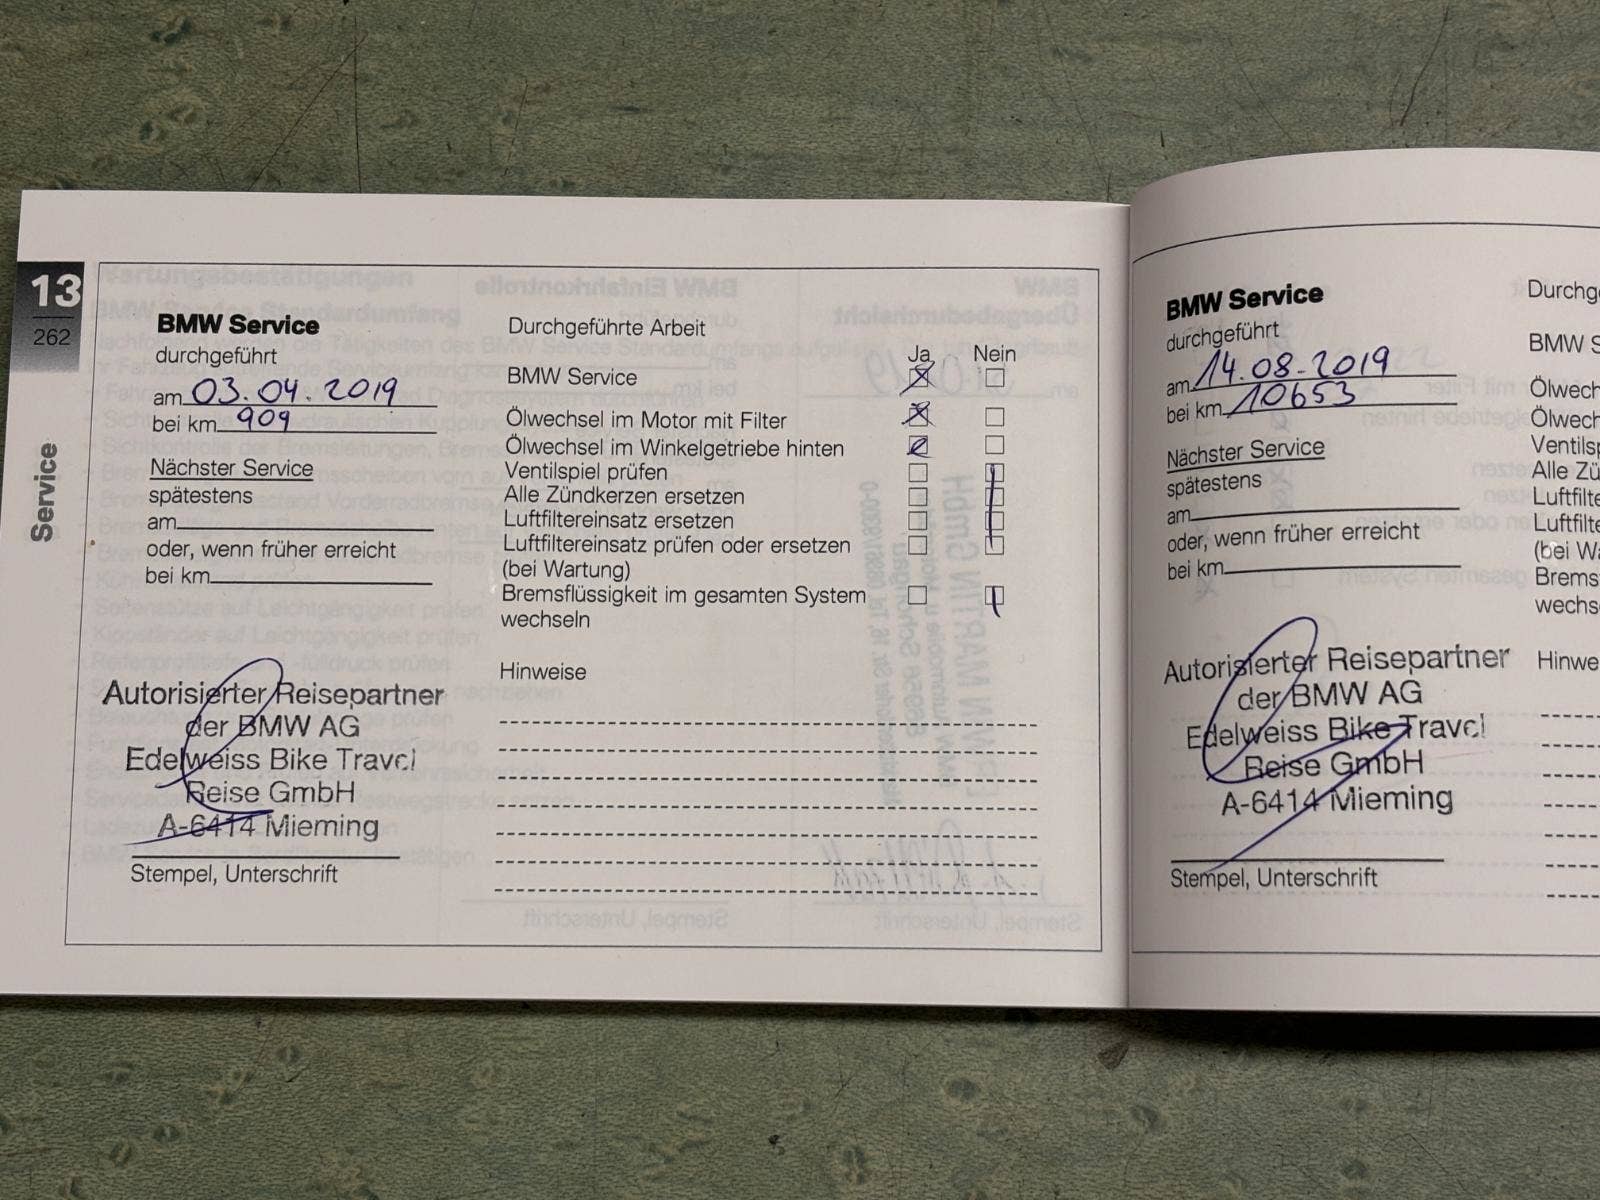 13
262
Service
BMW Service
durchgeführt
am 03.04.2019
bei km 909
Nächster Service
spätestens
am
oder, wenn früher erreicht
bei km
Autorisierter Reisepartner
der BMW AG
Edelweiss Bike Travel
Reise GmbH
A-6414 Mieming
Stempel, Unterschrift
Durchgeführte Arbeit
Ja Nein
BMW Service
Ölwechsel im Motor mit Filter
Ölwechsel im Winkelgetriebe hinten
Ventilspiel prüfen
Alle Zündkerzen ersetzen
Luftfiltereinsatz ersetzen
Luftfiltereinsatz prüfen oder ersetzen
(bei Wartung)
Bremsflüssigkeit im gesamten System
wechseln
Hinweise
BMW Service
durchgeführt
am 14.08.2019
bei km 10653
Nächster Service
spätestens
am
oder, wenn früher erreicht
bei km
Autorisierter Reisepartner
der BMW AG
Edelweiss Bike Travel
Reise GmbH
A-6414 Mieming
Stempel, Unterschrift
Durchg
BMW S
Ölwech
Ölwech
Ventilsp
Alle Zü
Luftfilte
Luftfilte
(bei Wa
Brems
wechs
Hinwe